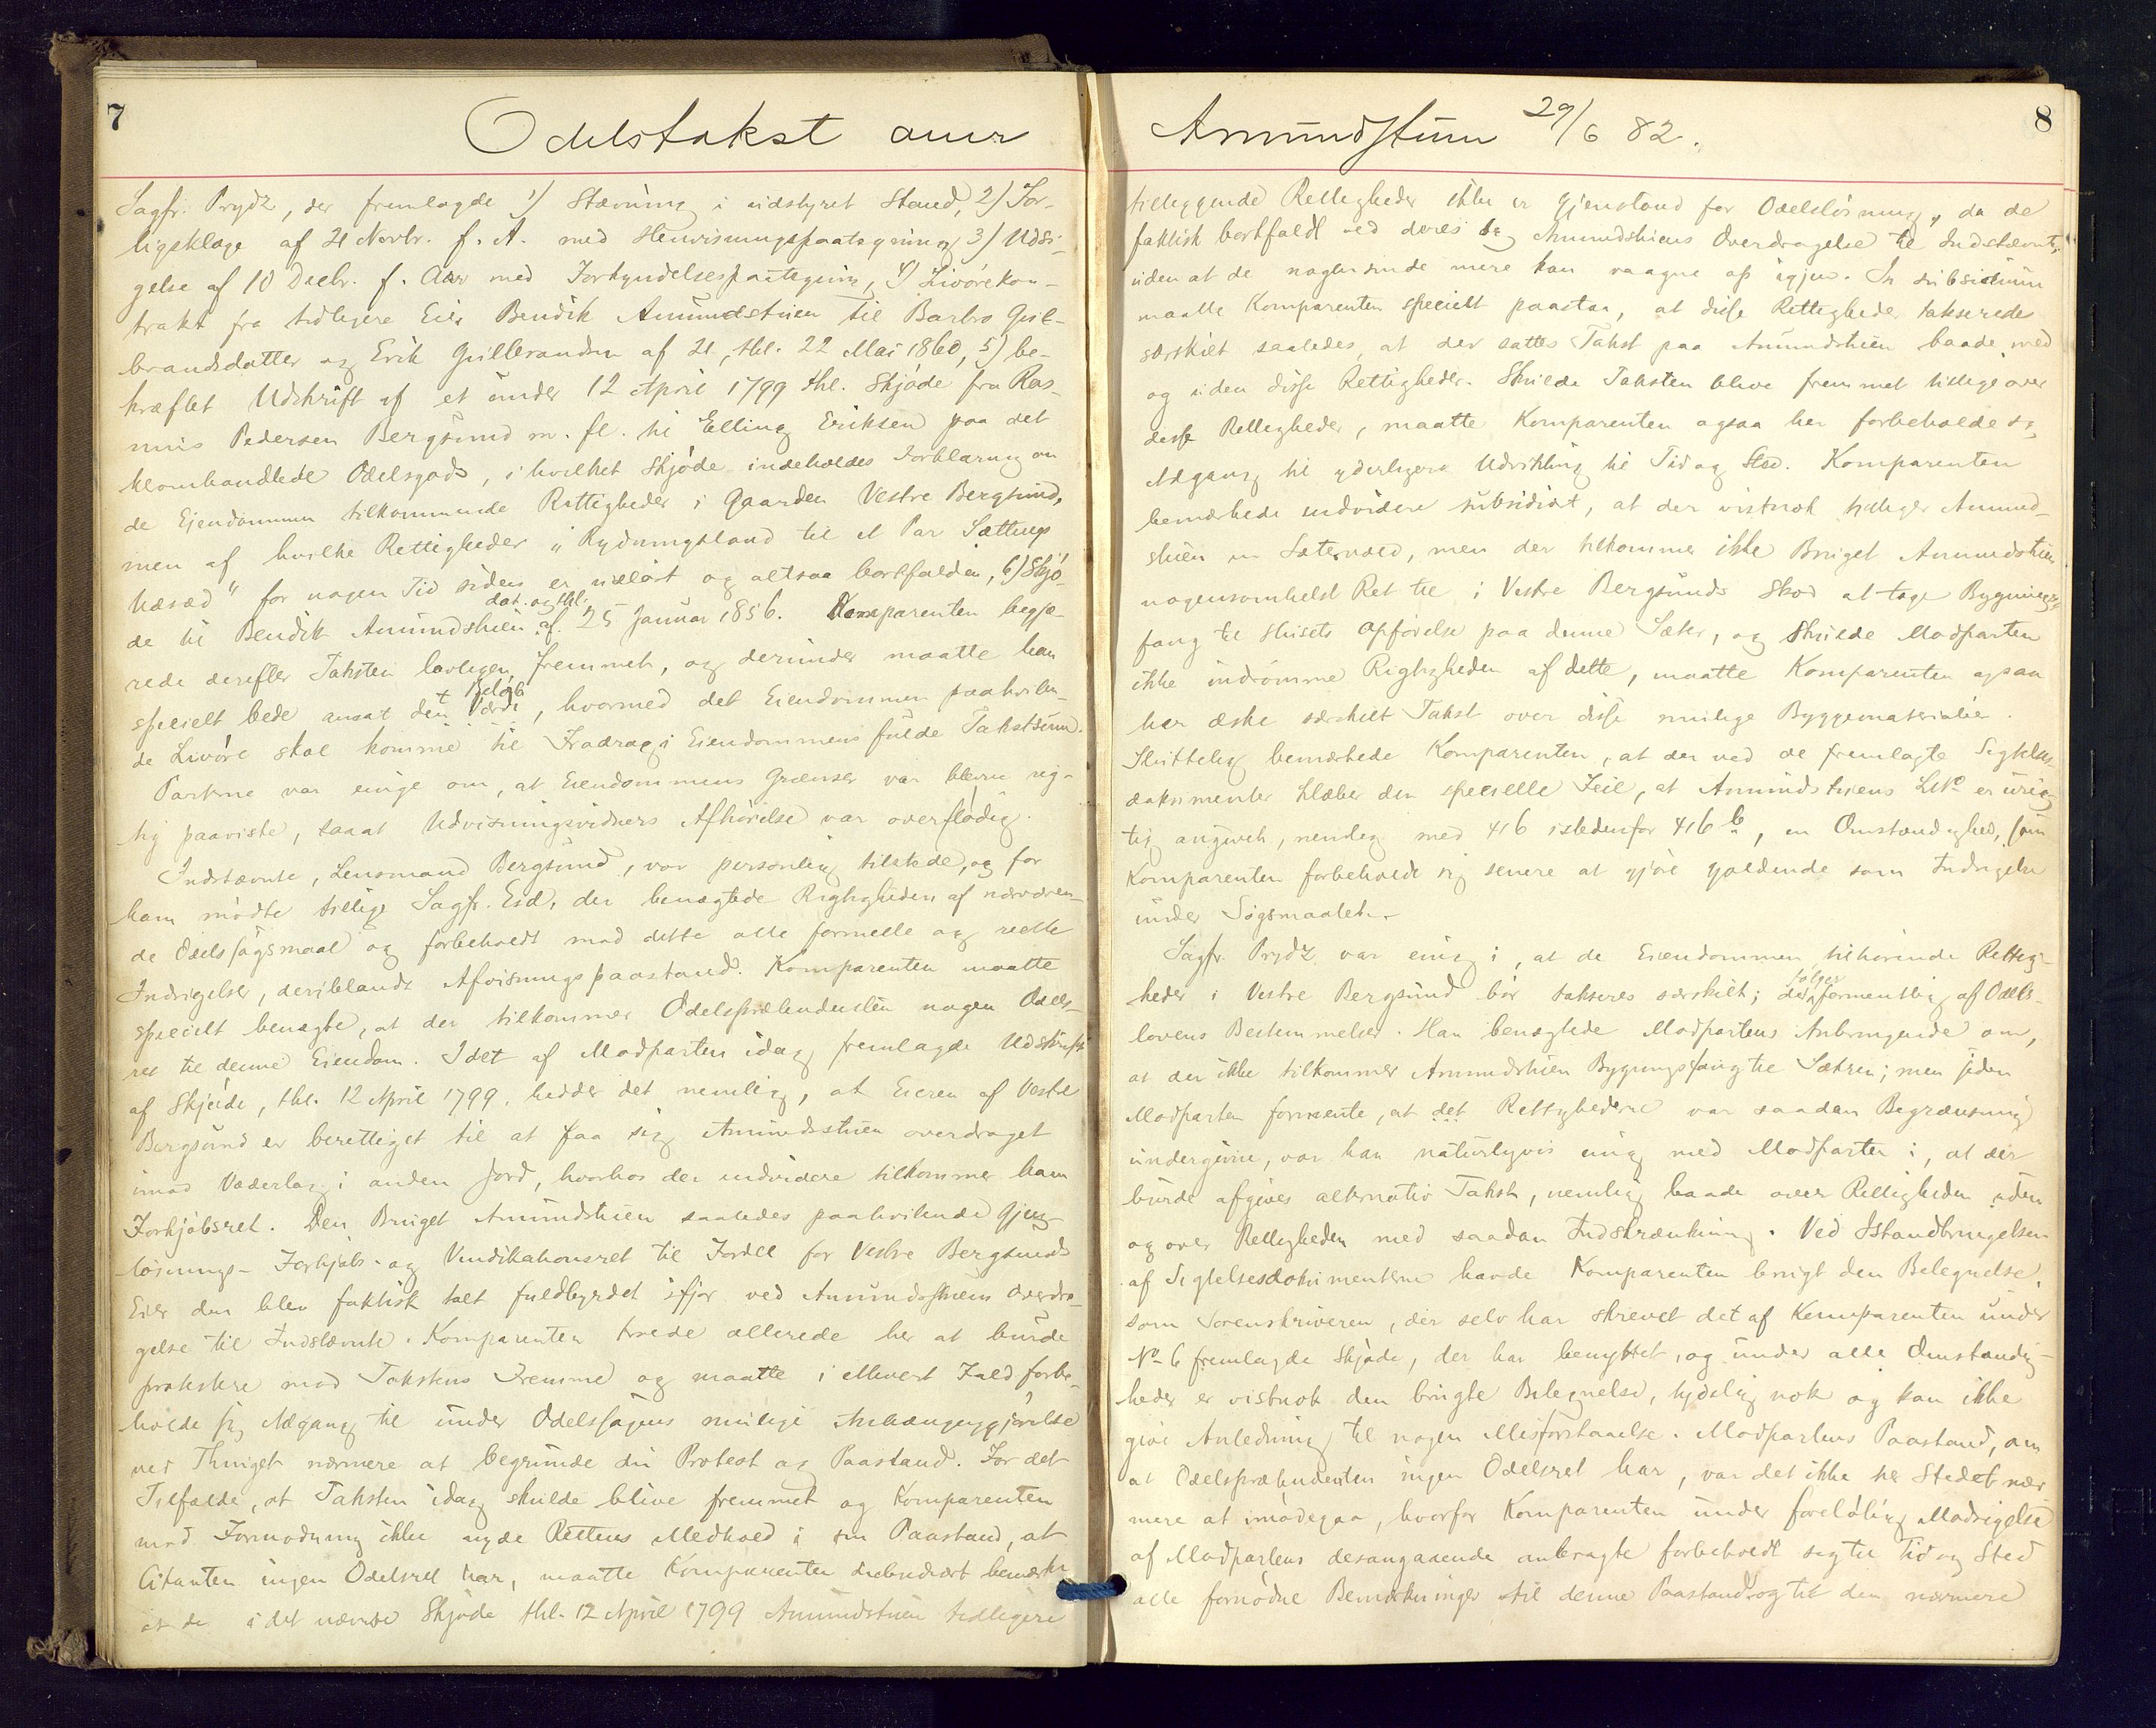 7
Odelstakst over
Sagfr. Prydz, der fremlagde 1) Stævning i udstyret Stand, 2) For-
ligsklage af 21 Novbr. f. A. med Henvisningspaategning 3) Udsi-
gelse af 10 Decbr. f. Aar med Forkyndelsespaategning, 4) Livörekon-
trakt fra tidligere Eier Bendik Amundstuen til Barbro Gul-
brandsdatter og Erik Gulbrandsen af 21, thl. 22 Mai 1860, 5) be-
kræftet Udskrift af et under 12 April 1799 thl. Skjöde fra Ras-
mus Pedersen Bergsund m. fl. til Elling Eriksen paa det
heromhandlede Odelsgods, i hvilket Skjöde indeholdes Forklaring om
de Eiendommen tilkommende Rettigheder i Gaarden Vestre Bergsund,
men af hvilke Rettigheder "Rydningsland til et Par Sættings
Udsæd" for nogen Tid siden er udlöst og altsaa bortfalden, 6) Skjö-
de til Bendik Amundstuen dat. og thl. af 25 Januar 1856. Komparenten begjæ-
rede derefter Taksten lovligen fremmet, og derunder maatte han
specielt bede ansat det Belöb, hvormed det Eiendommen paahvilen-
de Livöre skal komme til Fradrag i Eiendommens fulde Takstsum.
Parterne var enige om, at Eiendommens Grænser var bleven rig-
tig paaviste, saaat Udvisningsvidners Afhörelse var overflödig.
Indstævnte, Lensmand Bergsund, var personlig tilstede, og for
ham mödte tillige Sagfr. Eid, der benægtede Rigtigheden af nærværen-
de Odelssögsmaal og forbeholdt mod dette alle formelle og reelle
Indsigelser, deriblandt Afvisningspaastand. Komparenten maatte
specielt benægte, at der tilkommer Odelsprætendenten nogen Odels-
ret til denne Eiendom. I det af Modparten idag fremlagde Udskrift
af Skjöde, thl. 12 April 1799, hedder det nemlig, at Eieren af Vestre
Bergsund er berettiget til at faa sig Amundstuen overdraget
imod Vederlag i anden Jord, hvorhos der endvidere tilkommer ham
Forkjöbsret. Den Bruget Amundstuen saaledes paahvilende Gjen-
lösnings- Forkjöbs- og Vindikationsret til Fordel for Vestre Bergsunds
Eier den blev faktisk talt fuldbyrdet ifjor ved Amundstuens Overdra-
gelse til Indstævnte. Komparenten troede allerede her at burde
protestere mod Takstens Fremme og maatte i ethvert Fald forbe-
holde sig Adgang til under Odelssagens mulige Anhængiggjörelse
ved Thinget nærmere at begrunde sin Protest og Paastand. For det
Tilfælde, at Taksten idag skulde blive fremmet og Komparenten
mod Formodning ikke nyde Rettens Medhold i sin Paastand, at
Citanten ingen Odelsret har, maatte Komparenten subsidiært bemærke
at de i det nævnte Skjöde thl. 12 April 1799 Amundstuen tidligere
8
Amundstuen 29/6 82.
tilliggende Rettigheder ikke er Gjenstand for Odelslösning, da de
faktisk bortfaldt ved deres og Amundstuens Overdragelse til Indstævnte,
uden at de nogensinde mere kan vaagne op igjen. In subsidium
maatte Komparenten specielt paastaa, at disse Rettigheder takseredes
særskilt saaledes, at der sattes Takst paa Amundstuen baade med
og uden disse Rettigheder. Skulde Taksten blive fremmet tillige over
disse Rettigheder, maatte Komparenten ogsaa her forbeholde sig
Adgang til yderligere Udvikling til Tid og Sted. Komparenten
bemærkede endvidere subsidiært, at der vistnok tilligger Amund-
stuen en Sætervold, men der tilkommer ikke Bruget Amundstuen
nogensomhelst Ret til i Vestre Bergsunds Skov at tage Bygnings-
fang til Husets Opförelse paa denne Sæter, og skulde Modparten
ikke indrömme Rigtigheden af dette, maatte Komparenten ogsaa
her æske særskilt Takst over disse mulige Byggematerialier.
Sluttelig bemærkede Komparenten, at der ved de fremlagte Sigtelses-
dokumenter klæber den specielle Feil, at Amundstuens LNo er urig-
tig angivet, nemlig med 416 istedenfor 416 b, en Omstændighed, som
Komparenten forbeholdt sig senere at gjöre gjældende som Indsigelse
under Sögsmaalet.
Sagfr. Prydz var enig i, at de Eiendommen tilhörende Rettig-
heder i Vestre Bergsund bör takseres særskilt; det fölger formentlig af Odels-
lovens Bestemmelser. Han benægtede Modpartens Anbringende om,
at der ikke tilkommer Amundstuen Bygningsfang til Sætren; men siden
Modparten formente, at det Rettighederne var saadan Begrænsning
undergivne, var han naturligvis enig med Modparten i, at der
burde afgives alternativ Takst, nemlig baade over Rettigheden uden
og over Rettigheden med saadan Indskrænkning. Ved Istandbringelsen
af Sigtelsesdokumenterne havde Komparenten brugt den Betegnelse,
som Sorenskriveren, der selv har skrevet det af Komparenten under
No 6 fremlagde Skjöde, der har benyttet, og under alle Omstændig-
heder er vistnok den brugte Betegnelse, tydelig nok og kan ikke
give Anledning til nogen Misforstaaelse. Modpartens Paastand, om
at Odelsprætendenten ingen Odelsret har, var det ikke her Stedet nær-
mere at imödegaa, hvorfor Komparenten under forelöbig Modsigelse
af Modpartens desangaaende anbragte forbeholdt sig til Tid og Sted
alle fornödne Bemærkninger til denne Paastand og til den nærmere